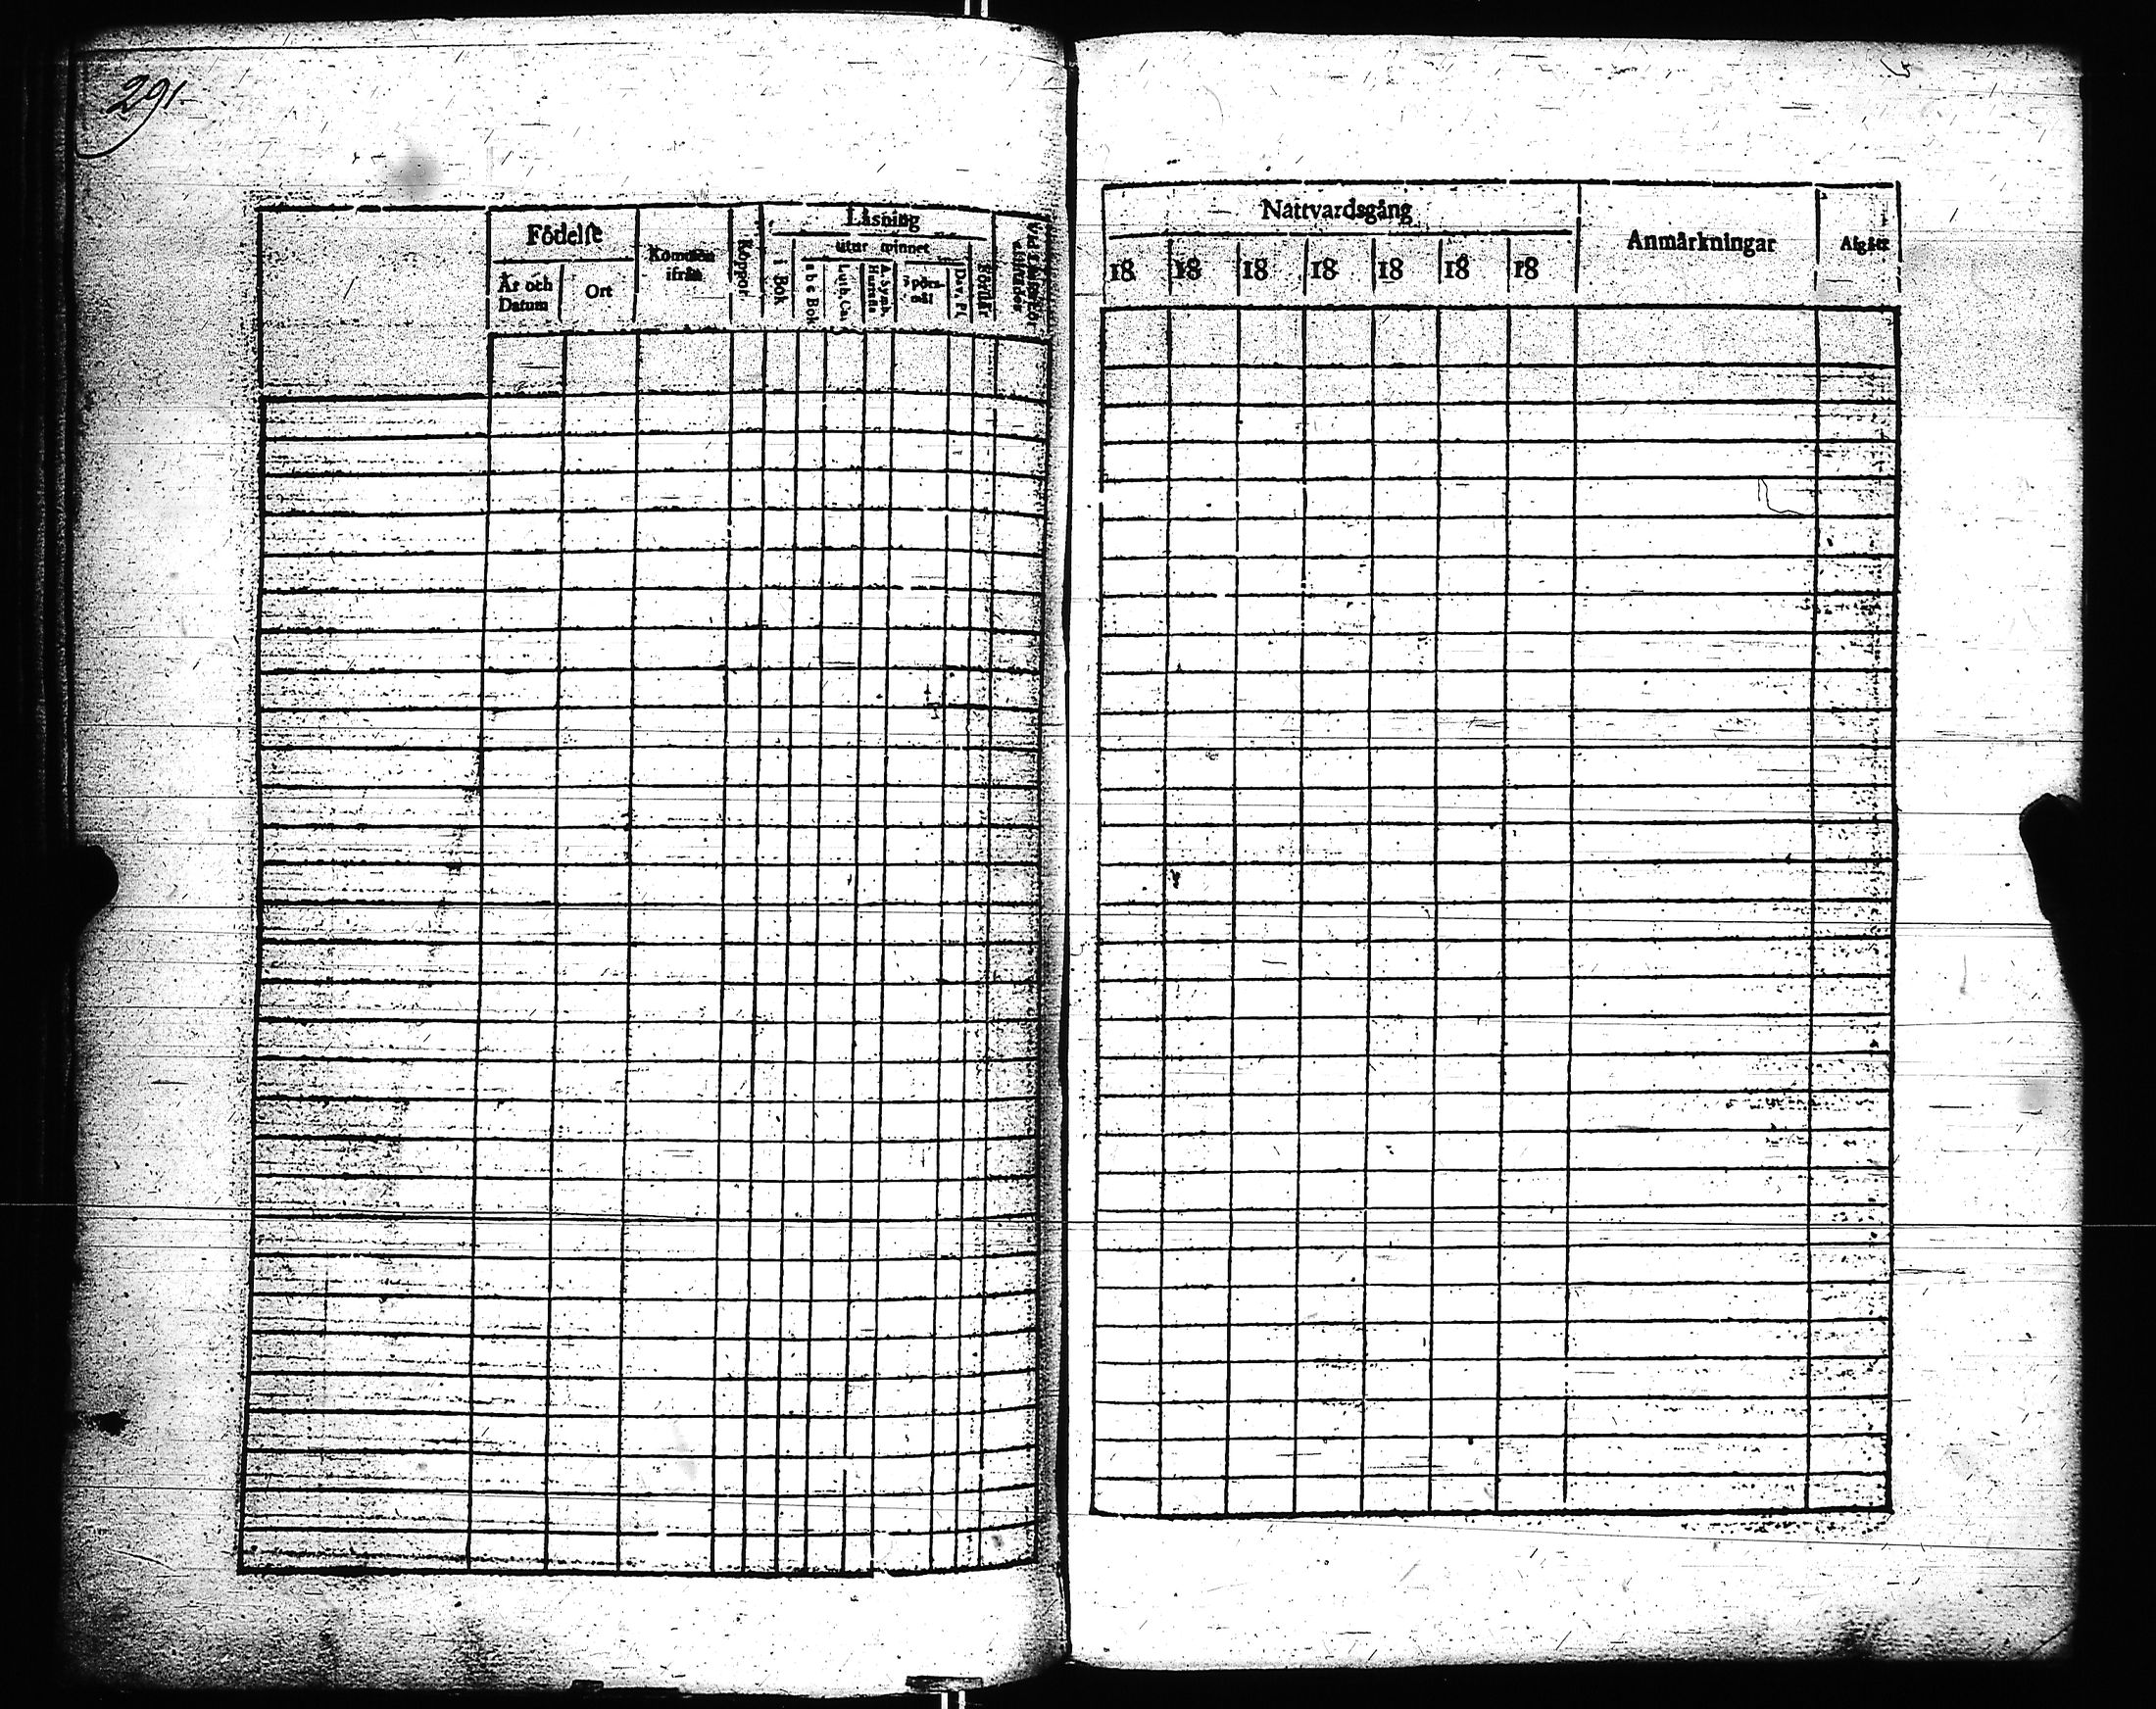 291
Födelse
År och Datum
Ort
Kommen ifrån
Koppor
Läsning
i Bok
utur minnet
a b c Bok
Luth. Cat.
A. Symb. Hustafla
Spörsmål
Dav. Ps.
Förstår
Nattvardsgång
18 18 18 18 18 18 18
Anmärkningar
Afgått